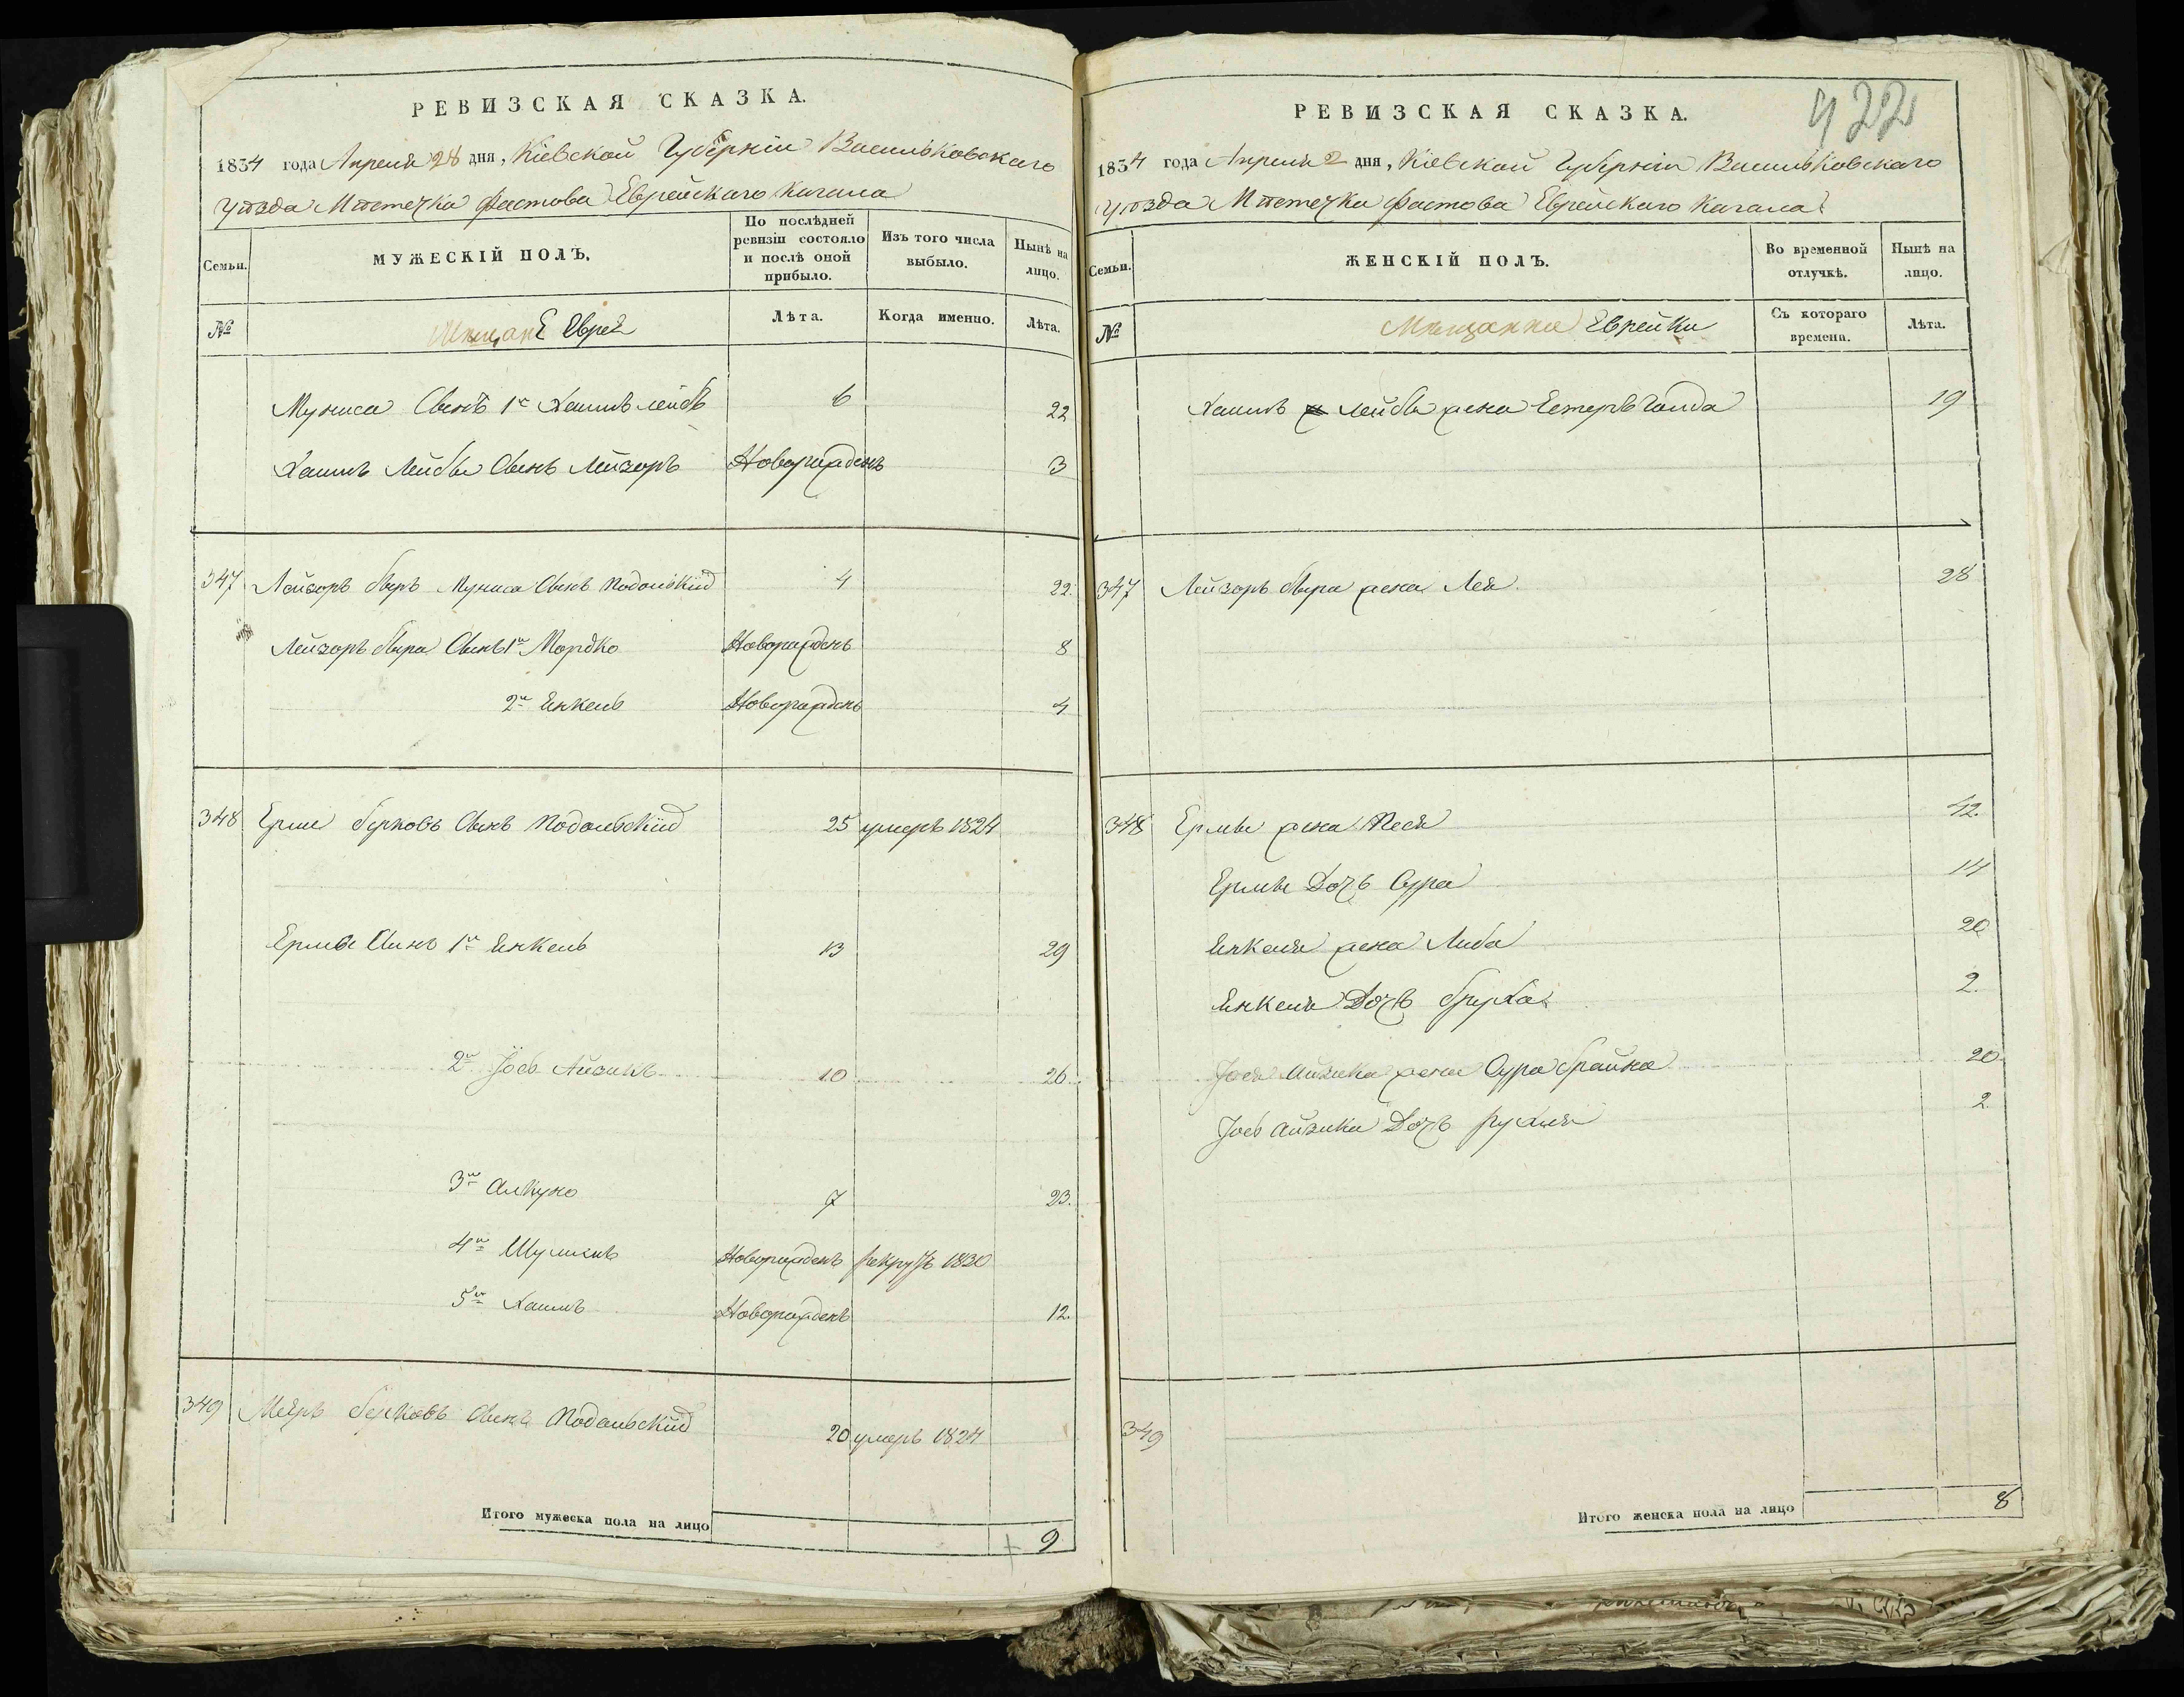 РЕВИЗСКАЯ СКАЗКА.
1834 года Апреля 28 дня, Кіевской Губерніи Васильковскаго
Уѣзда Мѣстечка Фастова Еврейскаго Кагала
Семьи.
МУЖЕСКІЙ ПОЛЪ.
По послѣдней ревизіи состояло и послѣ оной прибыло.
Изъ того числа выбыло.
Нынѣ на лицо.
№
Мѣщане Евреи
Лѣта.
Когда именно.
Лѣта.
Муниса Сынъ 1й Хаимъ Лейбъ 6 22
Хаимъ Лейбы Сынъ Лейзоръ Новорожденъ 3
347 Лейзоръ Беръ Муниса Сынъ Подольскій 4 22.
Лейзоръ Бера Сынъ 1й Мордко Новорожденъ 8
2й Енкель Новорожденъ 4
348 Ерше Берковъ Сынъ Подольскій 25 умеръ 1824
Ершы Сынъ 1й Енкель 13 29
2й Іось Айзикъ 10 26.
3й Алкуно 7 23.
4й Шулимъ Новорожденъ рекрутъ 1830
5й Хаимъ Новорожденъ 12.
349 Мееръ Берковъ Сынъ Подольскій 20 умеръ 1824
Итого мужеска пола на лицо 9
422
РЕВИЗСКАЯ СКАЗКА.
1834 года Апреля 2 дня, Кіевской Губерніи Васильковскаго
Уѣзда Мѣстечка Фастова Еврейскаго Кагала
Семьи.
ЖЕНСКІЙ ПОЛЪ.
Во временной отлучкѣ.
Нынѣ на лицо.
№
Мѣщанки Еврейки
Съ котораго времени.
Лѣта.
Хаимъ Лейбы жена Естеръ Голда 19
347 Лейзоръ Бера жена Лея 28
348 Ершы жена Песя 42.
Ершы Дочь Сура 14
Енкеля жена Либа 20
Енкеля Дочь Бруха 2.
Іося Айзика жена Сура Брайна 20.
Іось Айзика Дочь Рухля 2.
349
Итого женска пола на лицо 8